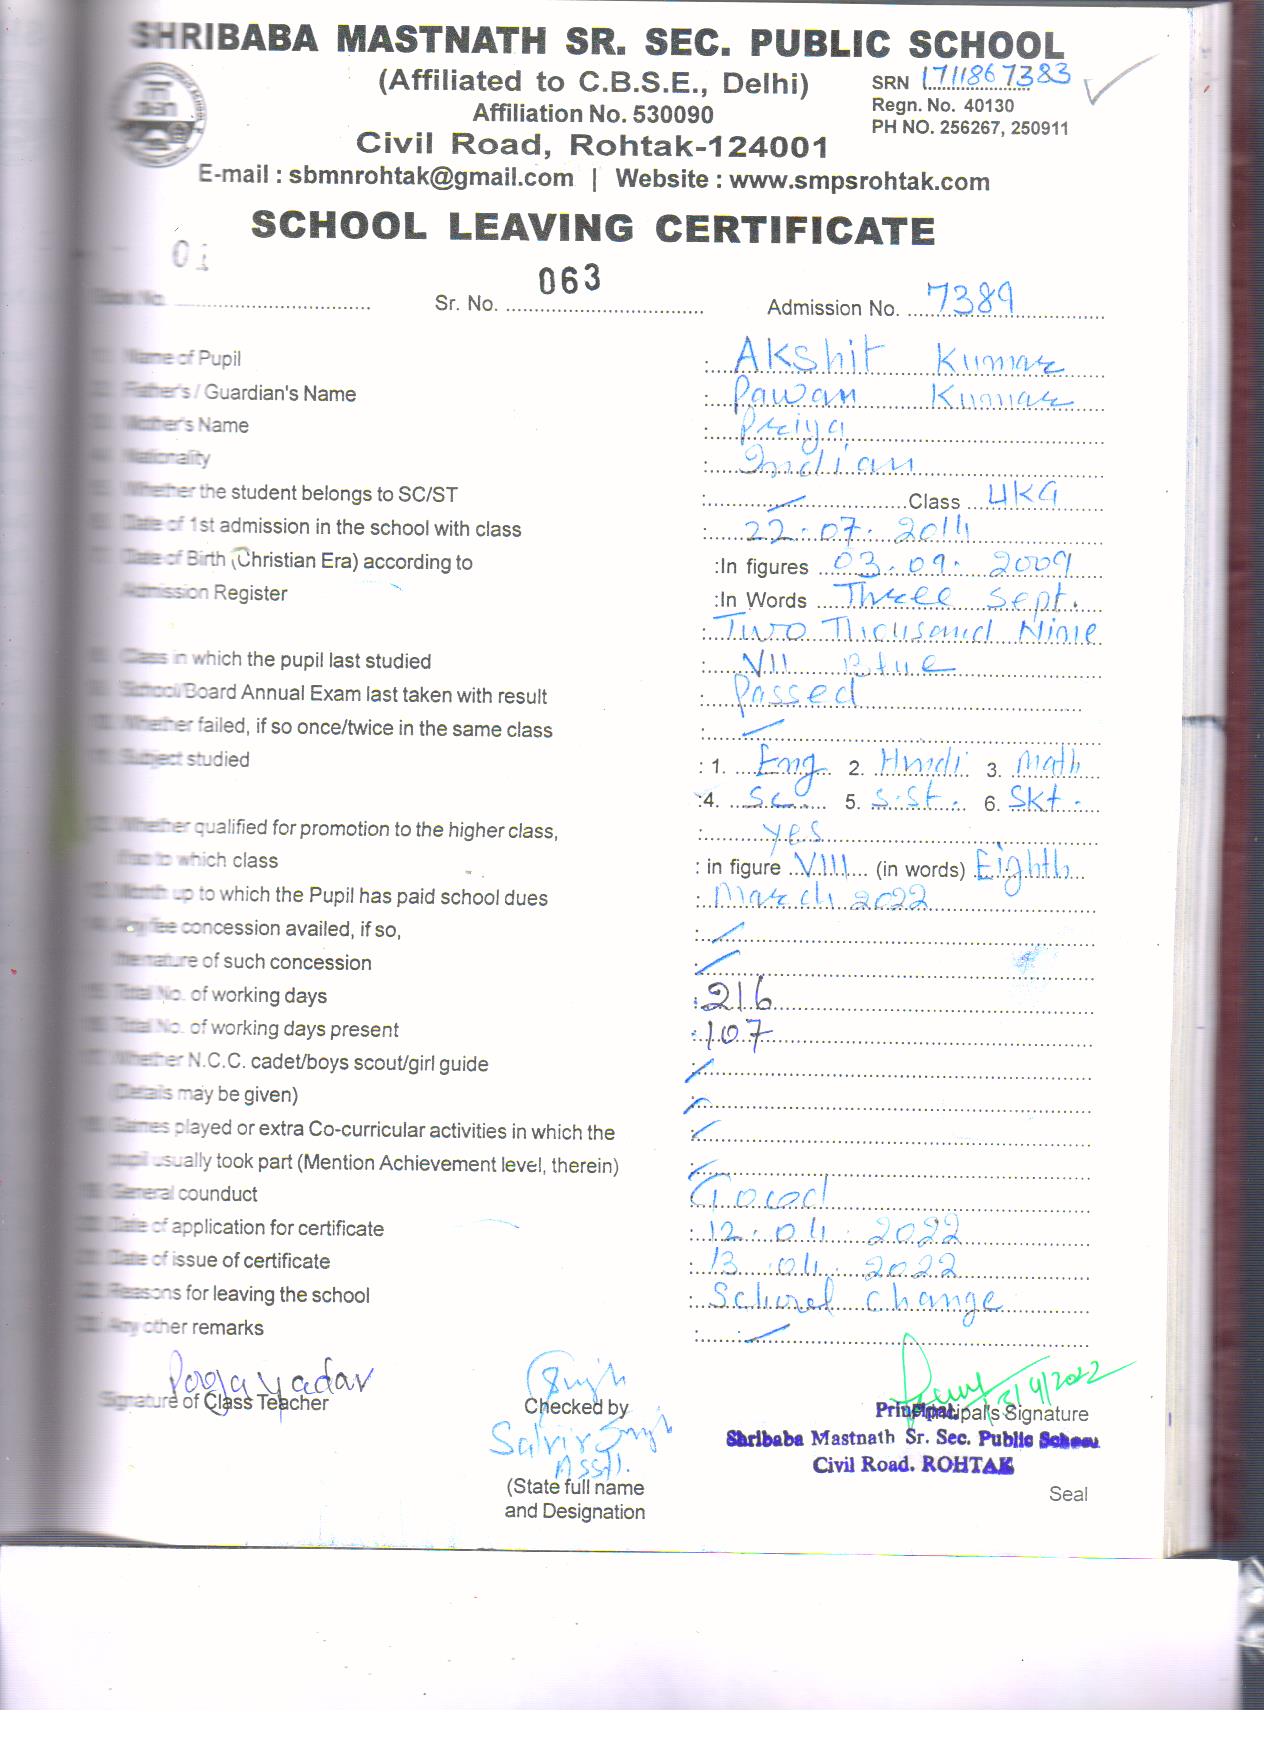 SHRIBABA MASTNATH SR. SEC. PUBLIC SCHOOL
(Affiliated to C.B.S.E., Delhi)
SRN 1711867383
Affiliation No. 530090
Regn. No. 40130
PH NO. 256267, 250911
Civil Road, Rohtak-124001
E-mail : sbmnrohtak@gmail.com | Website : www.smpsrohtak.com
SCHOOL LEAVING CERTIFICATE
Sr. No. 063 Admission No. 7389
Name of Pupil : Akshit Kumar
Father's / Guardian's Name : Pawan Kumar
Mother's Name : Priya
Nationality : Indian
Whether the student belongs to SC/ST : Class UKG
Date of 1st admission in the school with class : 22.07.2014
Date of Birth (Christian Era) according to :In figures 03.09.2009
Admission Register :In Words Three Sept.
: Two Thousand Nine
Class in which the pupil last studied : VII Blue
School/Board Annual Exam last taken with result : Passed
Whether failed, if so once/twice in the same class :
Subject studied : 1. Eng 2. Hindi 3. Math
:4. Sc. 5. S.St. 6. Skt.
Whether qualified for promotion to the higher class, : yes
if so to which class : in figure VIII (in words) Eighth
Month up to which the Pupil has paid school dues : March 2022
Any fee concession availed, if so, :
the nature of such concession :
Total No. of working days : 216
Total No. of working days present : 107
Whether N.C.C. cadet/boys scout/girl guide :
(Details may be given) :
Games played or extra Co-curricular activities in which the :
pupil usually took part (Mention Achievement level, therein) :
General counduct : Good
Date of application for certificate : 12.04.2022
Date of issue of certificate : 13.04.2022
Reasons for leaving the school : School change
Any other remarks :
Pooja Yadav
Signature of Class Teacher
Checked by
Principal's Signature
13/4/2022
Principal
Shribaba Mastnath Sr. Sec. Public School
Civil Road. ROHTAK
Asstt.
(State full name
and Designation
Seal